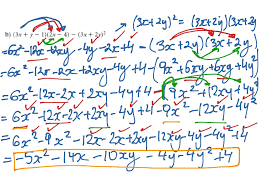 (3x+2y)² = (3x+2y)(3x+2y)
b) (3x + y − 1)(2x − 4) − (3x + 2y)²
= 6x² − 12x + 2xy − 4y − 2x + 4 − (3x+2y)(3x+2y)
= 6x² − 12x − 2x + 2xy − 4y + 4 − (9x² + 6xy + 6xy + 4y²)
= 6x² − 12x − 2x + 2xy − 4y + 4 − (9x² + 12xy + 4y²)
= 6x² − 12x − 2x + 2xy − 4y + 4 − 9x² − 12xy − 4y²
= 6x² − 9x² − 12x − 2x + 2xy − 12xy − 4y − 4y² + 4
= −5x² − 14x − 10xy − 4y − 4y² + 4